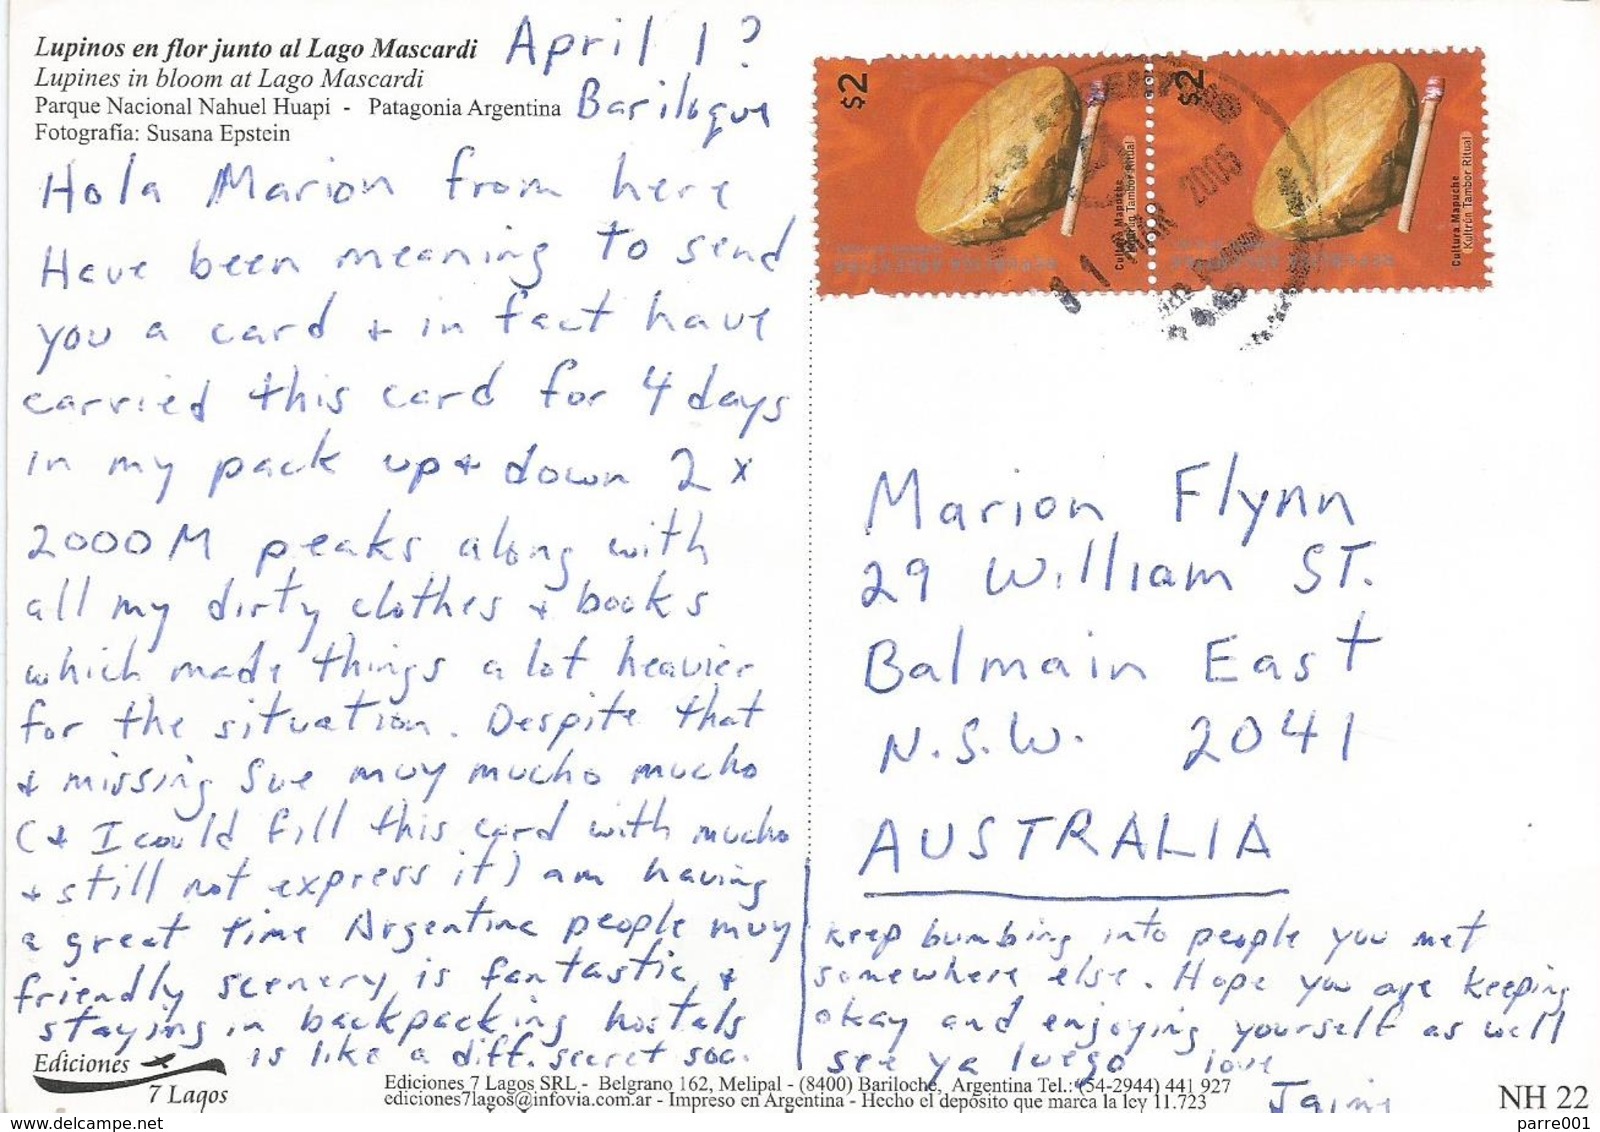 Lupinos en flor junto al Lago Mascardi
Lupines in bloom at Lago Mascardi
Parque Nacional Nahuel Huapi - Patagonia Argentina
Fotografía: Susana Epstein
April 1?
Bariloque
Hola Marion from here
Have been meaning to send
you a card + in fact have
carried this card for 4 days
in my pack up + down 2 x
2000M peaks along with
all my dirty clothes + books
which made things a lot heavier
for the situation. Despite that
+ missing Sue muy mucho mucho
(+ I could fill this card with mucho
+ still not express it) am having
a great time Argentine people muy
friendly scenery is fantastic, +
staying in backpacking hostels
is like a diff. secret soc.
keep bumbing into people you met
somewhere else. Hope you are keeping
okay and enjoying yourself as well
see ya luego love
Jaime
$2
Cultura Mapuche
Kultrún Tambor Ritual
$2
Cultura Mapuche
Kultrún Tambor Ritual
2006
Marion Flynn
29 William ST.
Balmain East
N.S.W. 2041
AUSTRALIA
Ediciones
7 Lagos
Ediciones 7 Lagos SRL - Belgrano 162, Melipal - (8400) Bariloche, Argentina Tel.: (54-2944) 441 927
ediciones7lagos@infovia.com.ar - Impreso en Argentina - Hecho el depósito que marca la ley 11.723
NH 22
www.delcampe.net
parre001